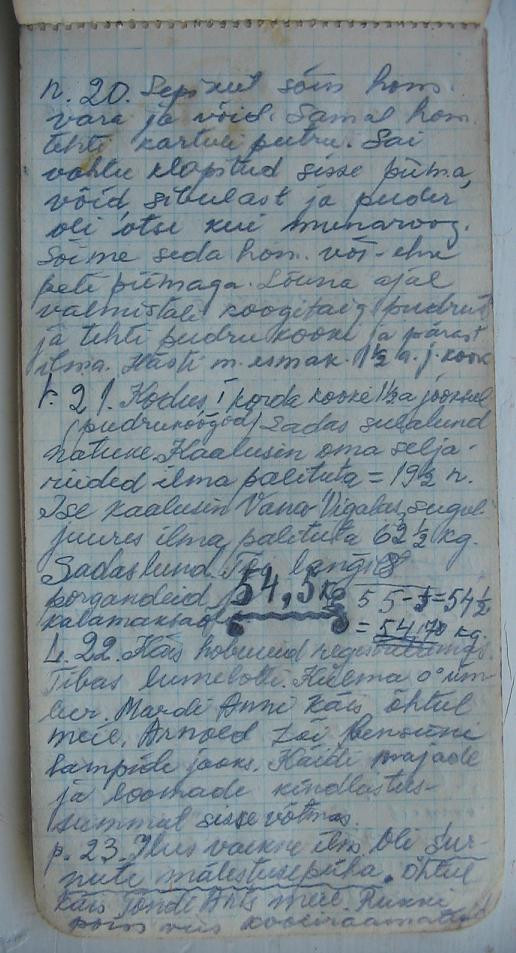 N. 20. Sepikut sõin hom.
vara ja võid. Samal hom.
tehti kartuli putru. Sai
vahtu klopitud sisse piima,
võid sibulast ja puder
oli otse kui munaroog.
Sõime seda hom. või-ehk
peti piimaga. Lõuna ajal
valmistati koogitaig pudrust
ja tehti pudru kooki ja pärast
ilma. Hästi m. esmak. 1½ a. j. kook
R. 21. Kodus 1 korda kooke 1½ a jooksul
(pudrukoogid) Sadas sulalund
natuke. Kaalusin oma selja-
riided ilma palituta = 19½ n.
Ise kaalusin Vana-Vigalas
juures ilma palituta 62½ kg.
Sadas lund.
porgandeid 54,5 kg 55-5=54½
kalamaksaõl = 54,170 kg.
L. 22. Käis hobuseid registreerimas.
Tibas lumelobi. Külma 0° üm-
ber. Mardi Anni käis õhtul
meil. Arnold tõi bensiini
lampide jaoks. Käidi majade
ja loomade kindlustus-
summat sisse võtmas.
P. 23. Ilus vaikne ilm. Oli Sur-
nute mälestusepüha. Õhtul
käis Tondi Ants meil.
poiss viis kooliraamatud